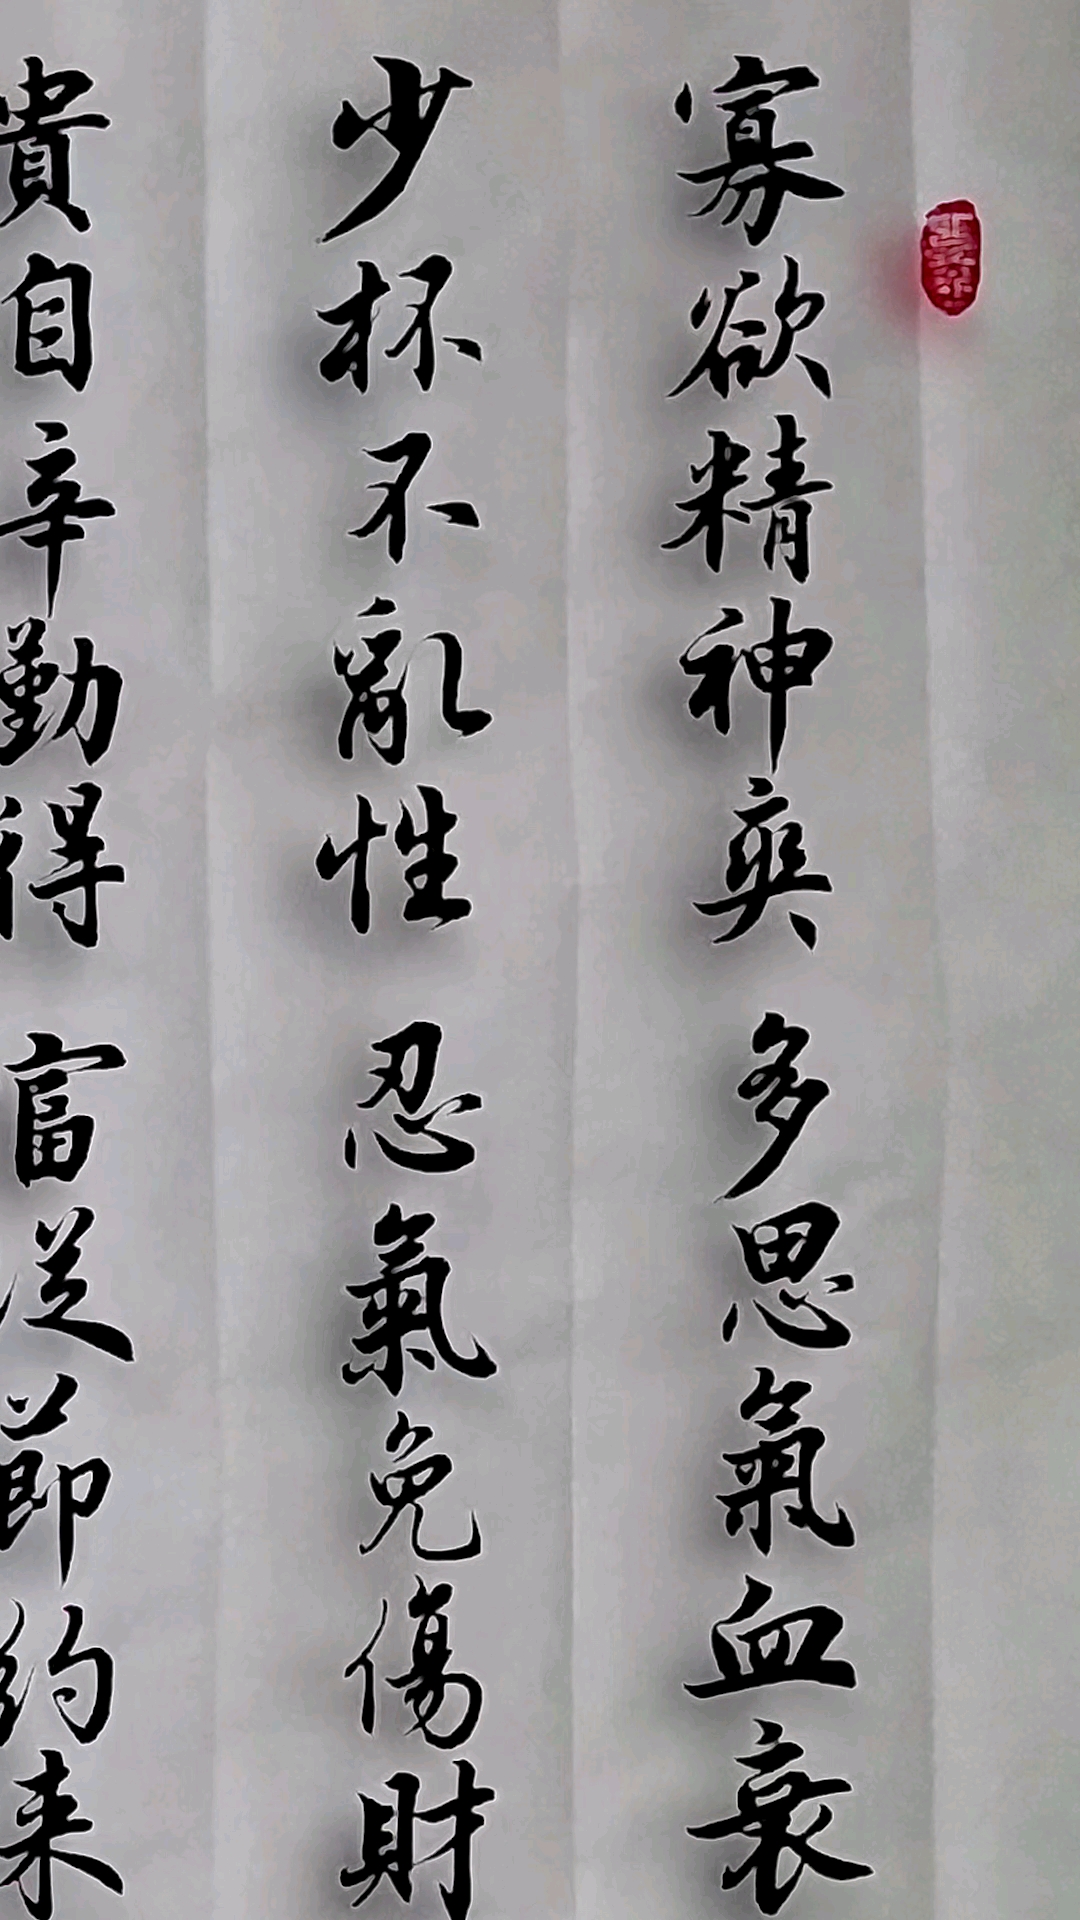 寡欲精神爽 多思氣血衰
少杯不亂性 忍氣免傷財
貴自辛勤得 富從節約来